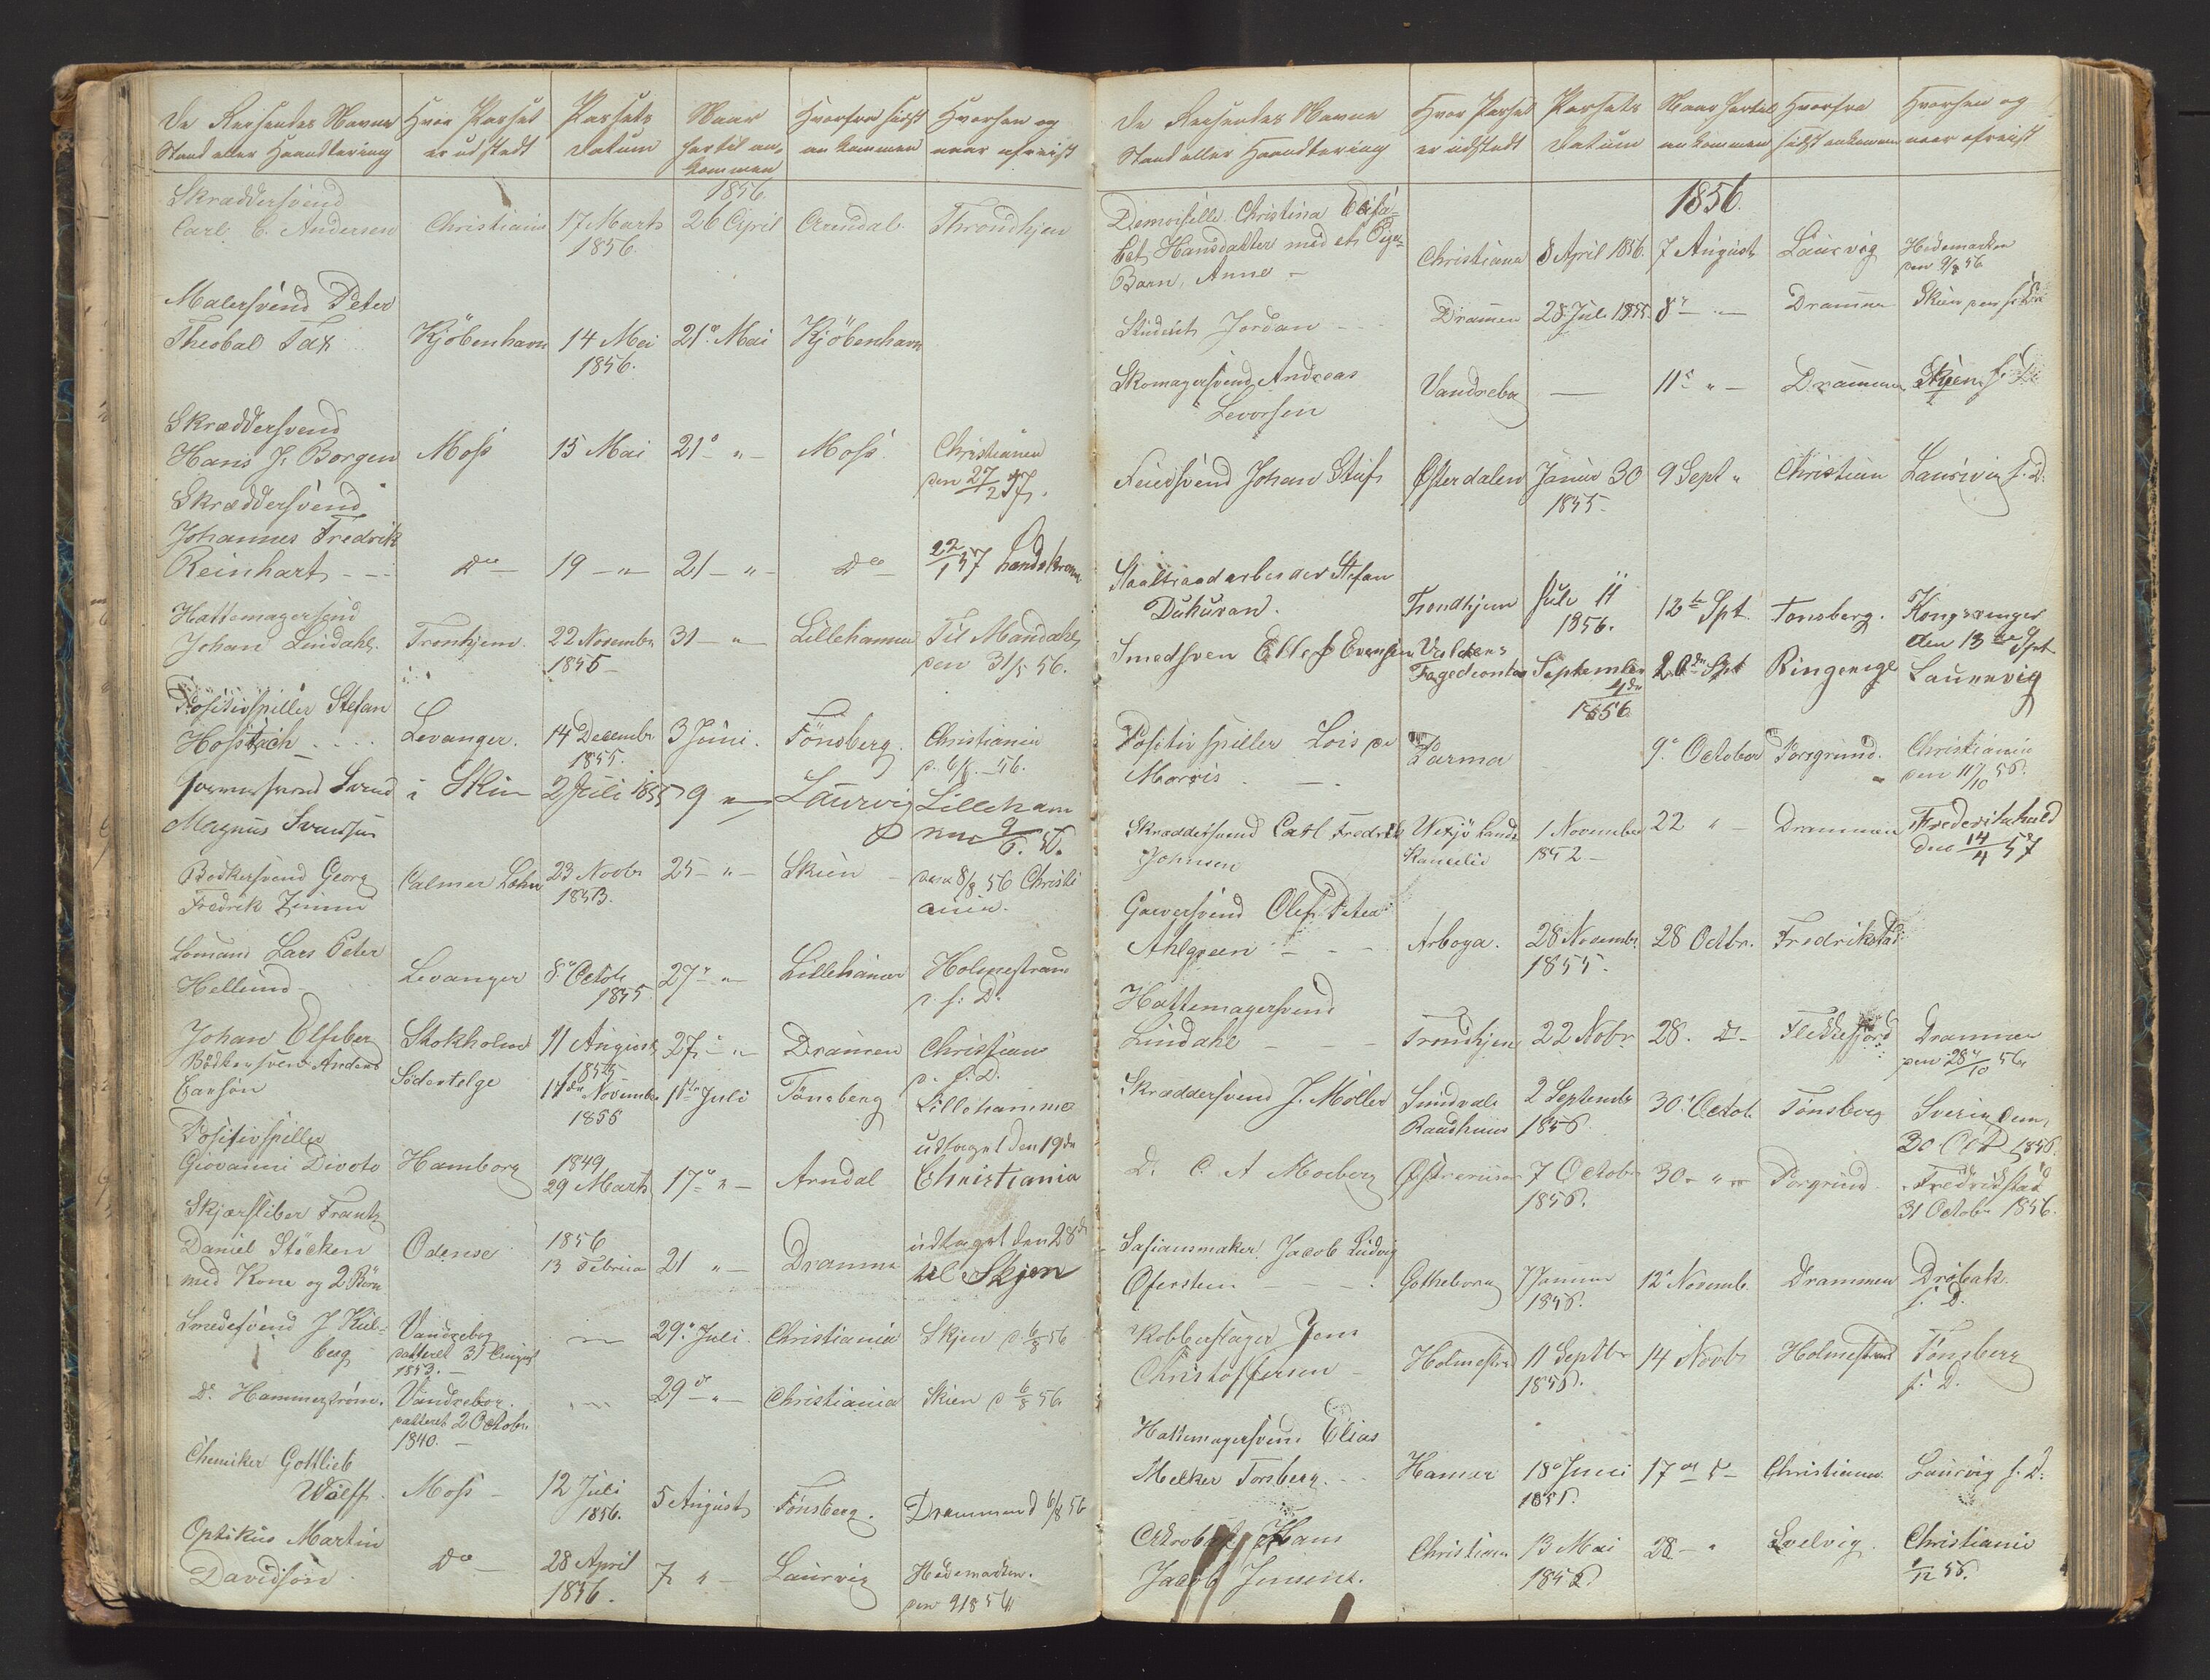 De Reisendes Navne Stand eller Haandtering | Hvor Passet er udstedt | Passets Datum | Naar hertil ankommen | Hvorfra sidst ankommen | Hvorhen og naar afreist
1856
Skræddersvend
Carl C. Andersen | Christiania | 17 Marts 1856. | 26 April | Arendal | Throndhjem
Malersvend Peter
Theobal Fax | Kjöbenhavn | 14 Mai 1856. | 21de Mai | Kjöbenhavn
Skræddersvend
Hans J. Borgen | Moss | 15 Mai | 21 " | Moss | Christiania den 27/2 57.
Skræddersvend
Johannes Fredrik
Reinhart | Do | 19 " | 21 " | Do | 22/1 57 Landskrona
Hattemagersvend
Johan Lindahl. | Tronhjem. | 22 Novembr 1855 | 31 " | Lillehammer | Til Mandahl den 31/5 56.
Positivspiller Stefan
Hosstach | Levanger. | 14 Decembr 1855. | 3 Juni. | Tönsberg. | Christiania d. 6/6 56.
Svend
Magnus Svendsen | i Skien | 2 Juli 1855 | 9 " | Laurvig | Lilleham
Bødkersvend Georg
Fredrik Zimmer | Calmar Læhn | 23 Novbr 1853. | 25 " | Skien | den 8/8 56 Christiania.
Lomand Lars Peter
Hellund | Levanger | 8de Octob 1855 | 27 " | Lillehamer | Holmestrand d. s. D.
Johan Elfsber | Stokholm | 11 August 1855 | 27 " | Dramen | Christiana d. s. D.
Bödkersvend Anders
Carson | Södertelge | 17de November 1855 | 15de Juli | Tönsberg | Lillehammer
Positivspiller
Giovanni Divoto | Hamborg | 1849 29 Marts | 17 " | Arndal | udtaget den 19de Christiania
Skjærsliber Frantz
Daniel Stöcken
med Kone og 2 Börn | Odense | 1856 13 Februar | 21 " | Dramme | udtaget den 28de til Skjen
Smedesvend J Kulberg | Vandrebog datteret 31 August 1853. | 29de Juli. | Christiania | Skjen d 6/8 56
Do Hammerström. | Vandrebog. datteret 2 Octobr 1840. | 29de " | Christiania | Skien d 6/8 56
Chemiker Gottlieb
Wulff. | Moss | 12 Juli 1856. | 5 August | Tönsberg. | Drammen d 6/8 56
Optikus Martin
Davidson | Do | 28 April 1856. | 7 " | Laurvig | Hedemarken. den 9/8 56
De Reisendes Navne Stand eller Haandtering | Hvor Passet er udstedt | Passets Datum | Naar hertil ankommen | Hvorfra sidst ankommen | Hvorhen og naar afreist
1856.
Demoiselle Christina Elisa-
bet Hansdatter med et Pige-
Barn, Anne | Christiana | 8 April 1856. | 7 August | Laurvig | Hedemarken den 9/8 56
Student Jordan | Dramen | 28 Juli 1855 | 8de " | Drammen | Skien
Skomagersvend Andreas
Levorsen | Vandrebog | 11te " | Drammen | Skien
Feiersvend Johan Stuf | Østerdalen | Januar 30 1855. | 9 Sept " | Christian | Laurvig s. D.
Staaltraadarbeider Stefan
Dukuran. | Trondhjem | Juli 11 1856. | 12te Spt. | Tonsberg. | Kongsvinger den 13de Spt
Smedsven Ellef Evensen | Valders | September 4de 1856 | 20de Spt | Ringerige | Laurvig
Positivspiller Lois de
Morris | Parma | 9de October | Porsgrund. | Christiania den 11/10 56.
Skræddersvend Carl Fredrik
Johnsen | Wexjö Lands Kanselie | 1 November 1852 | 22 " | Drammen | Frederikshald den 14/4 57
Garversvend Olef Peter
Ahlgreen | Arboga. | 28 Novembr 1855. | 28 Octbr. | Fredrikstad
Hattemagersvend
Lindahl | Trondhjem | 22 Nobr | 28. D. | Flekkefjord | Drammen den 28/10 56
Skræddersvend J. Möller | Sundvals Raadhuus | 2 Septembr 1856 | 30 Octob. | Tönsberg | Sverig den 30 Oct 1856.
D. C. A Moeberg | 7 Octobr 1856. | 30 " | Porgrund. | Fredrikstad 31 Octobr 1856.
Safiansmaker Jacob Ludvig
Ofersten | Gotheborg | 7 Januar 1856. | 12te Novemb. | Drammen | Dröbak. s. D.
Kobberslager Jens
Christoffersen | Holmestrd | 11 Septbr 1856. | 14 Novbr | Holmestrand | Tönsberg s. D.
Hattemagersvend Elias
Melker Torsberg. | Hamar | 18de Juni 1855. | 17de D | Christiana. | Laurvig s. D.
Hans
Jacob Jensen. | Christiana | 13 Mai | 28 " | Svelvig. | Christiania 1/12 56.